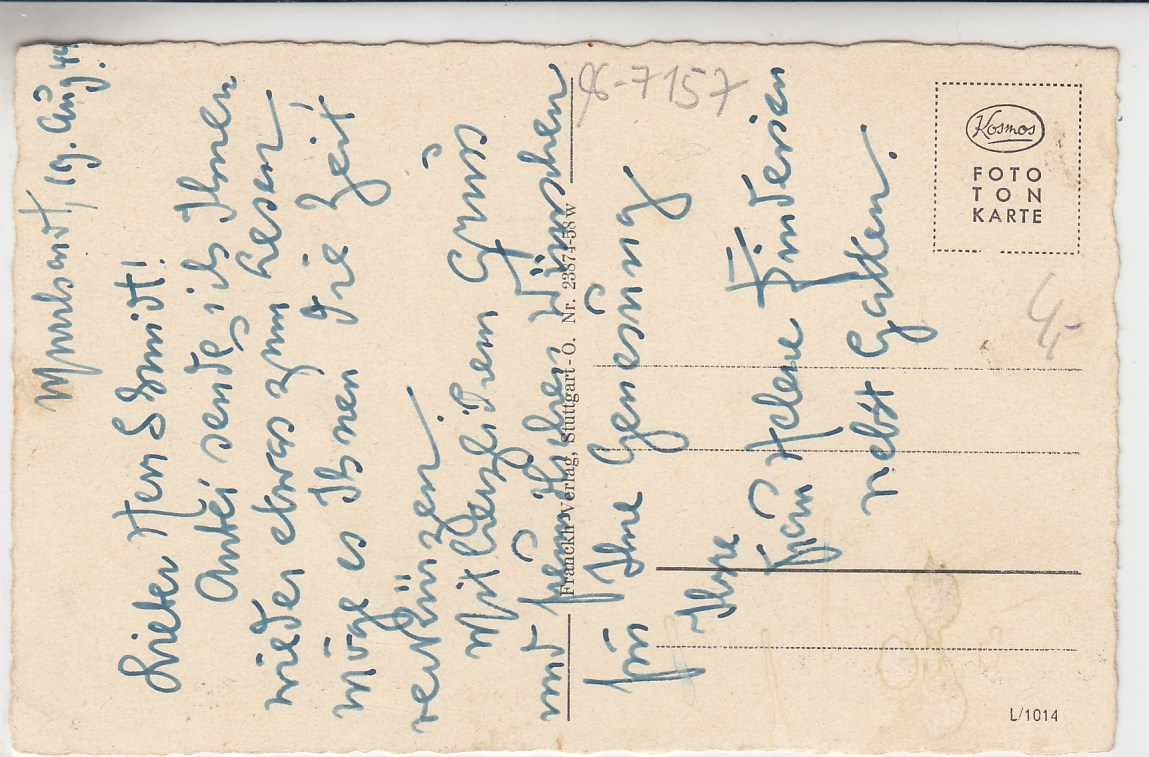 19. Aug. 44.
Lieber Herr Schmidt!
Anbei sende ich Ihnen
wieder etwas zum Lesen
möge es Ihnen die Zeit
verkürzen.
Mit herzlichem Gruss
und frdl. Wünschen
für Ihre Genesung
Ihre
Frau Helene
nebst Gatten.
Franckh-Verlag, Stuttgart-O. Nr. 23874-58 w
96-7157
Kosmos
FOTO
TON
KARTE
4,-
L/1014